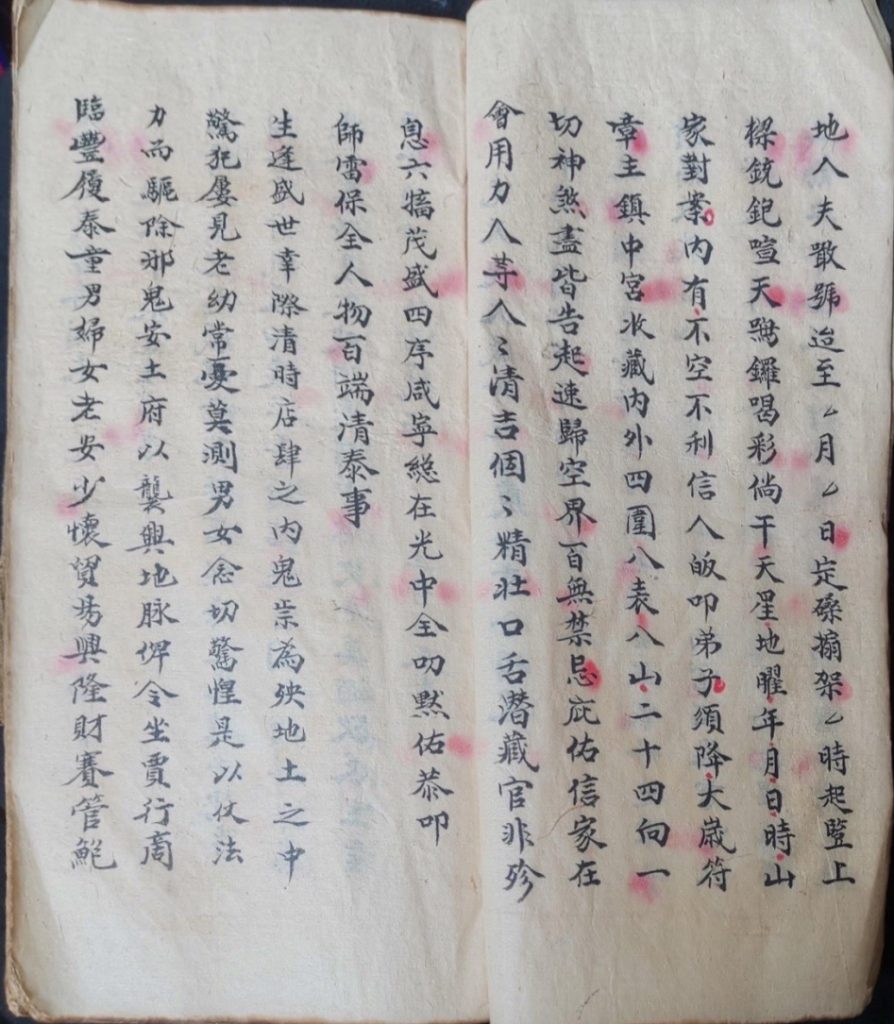 地人夫散號迨至厶月厶日定磉搧架厶時起豎上
樑銃鈀喧天鬧鑼喝彩倘干天星地曜年月日時山
家對案內有不空不利信人皈叩弟子須降大歲符
章主鎮中宮收藏內外四圍八表八山二十四向一
切神煞盡皆告起速歸空界百無禁忌庇佑信家在
會用力人等人〻清吉個〻精壯口舌潛藏官非殄
息六犒茂盛四序咸寧總在光中全叨默佑恭叩
師雷保全人物百端清泰事
生逢盛世幸際清時店肆之內鬼祟為殃地土之中
驚犯屢見老幼常憂莫測男女念切驚惶是以仗法
力而驅除邪鬼安土府以襲興地脉俾令坐賈行商
臨豐履泰童男婦女老安少懷貿易興隆財賽管鮑